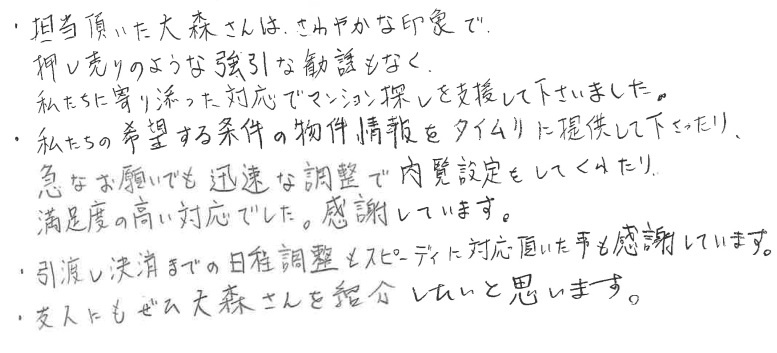 ・担当頂いた大森さんは、さわやかな印象で、
押し売りのような強引な勧誘もなく、
私たちに寄り添った対応でマンション探しを支援して下さいました。
・私たちの希望する条件の物件情報をタイムリに提供して下さったり、
急なお願いでも迅速な調整で内覧設定をしてくれたり、
満足度の高い対応でした。感謝しています。
・引渡し決済までの日程調整もスピーディに対応頂いた事も感謝しています。
・友人にもぜひ大森さんを紹介したいと思います。